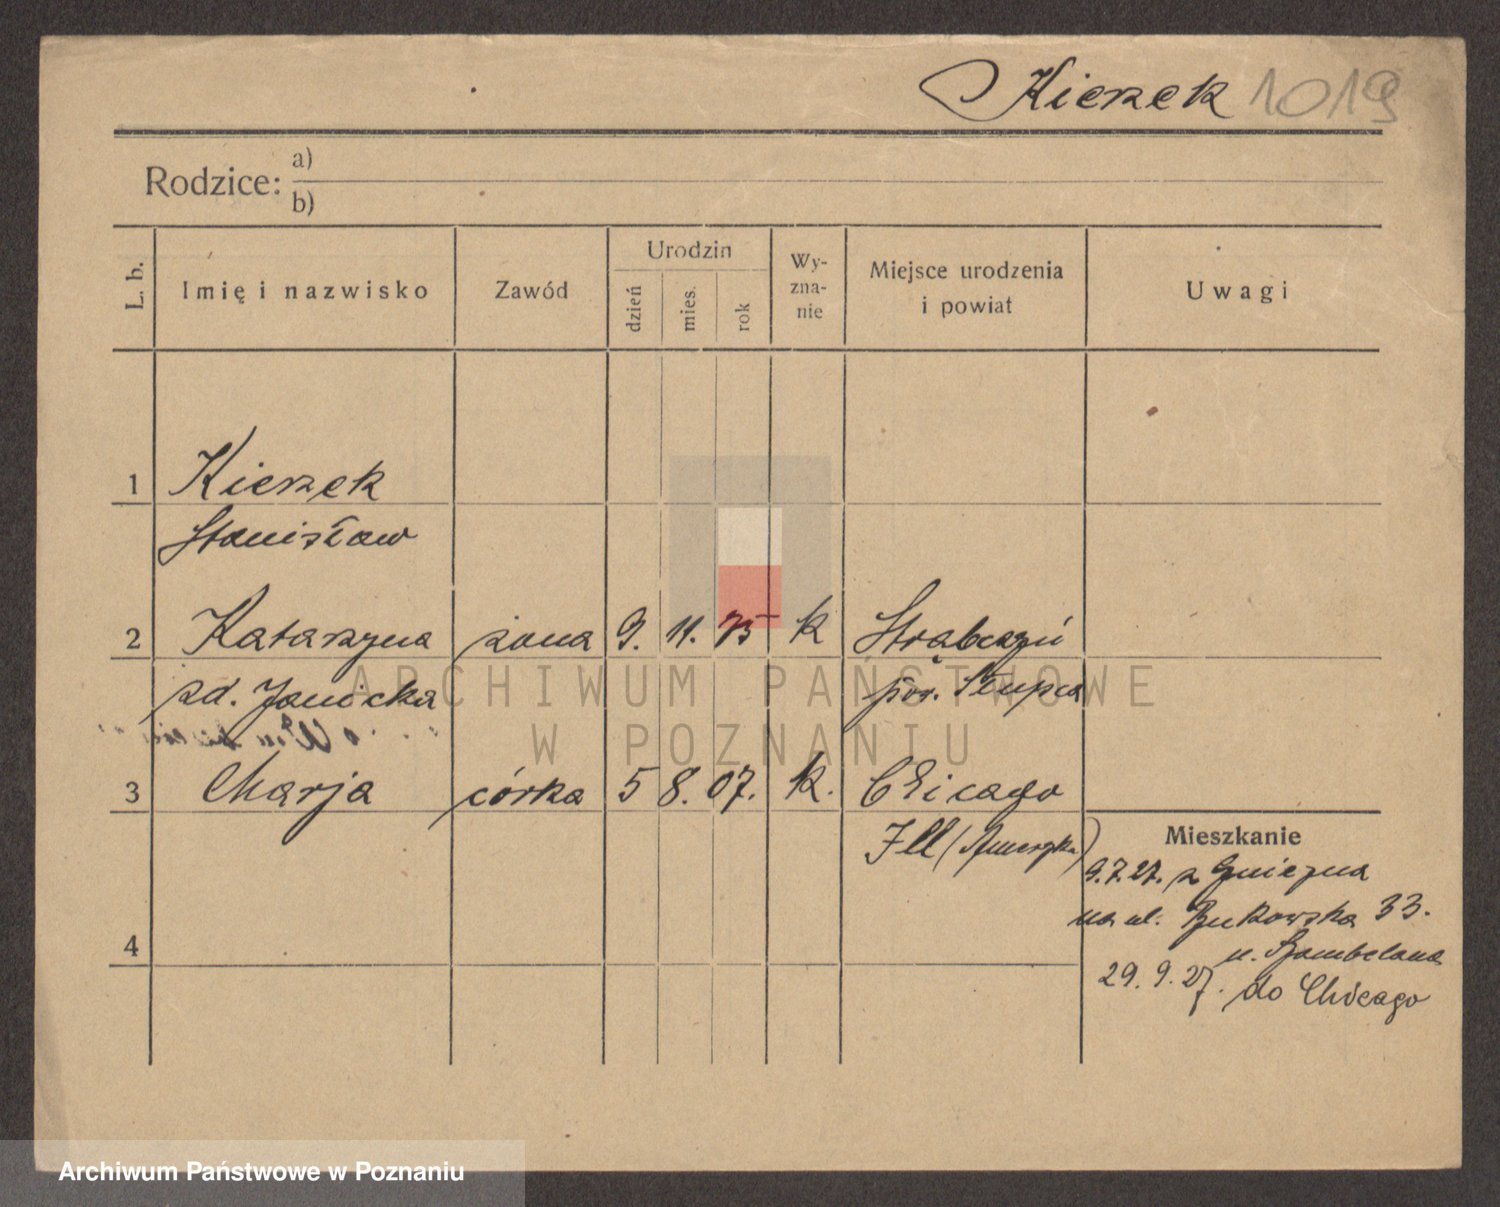 Kierzek 1019
Rodzice: a)
b)
L. b.
Imię i nazwisko
Zawód
Urodzin
dzień
mies.
rok
Wy-
zna-
nie
Miejsce urodzenia
i powiat
Uwagi
1 Kierzek
Stanisław
2 Katarzyna żona 9. 11. 75 k
zd. Janicka pow. Słupca
3 Marja córka 5 8. 07. k. Chicago
Ill (Ameryka)
Mieszkanie
9.7.27. z Gniezna
na ul. Bukowska 33.
u. Szambelana
29.9.27. do Chicago
4
ARCHIWUM PAŃSTWOWE
W POZNANIU
Archiwum Państwowe w Poznaniu